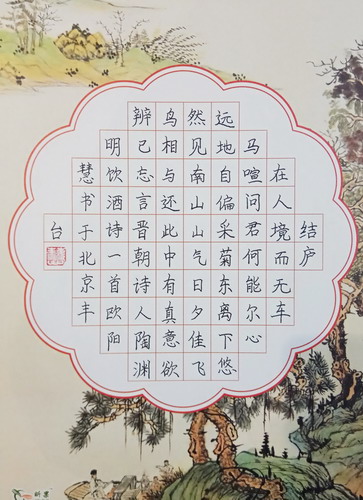 结庐
在人境而无车
马喧问君何能尔心
远地自偏采菊东离下悠
然见南山山气日夕佳飞
鸟相与还此中有真意欲
辨已忘言晋朝诗人陶渊
明饮酒诗一首欧阳
慧书于北京丰
台